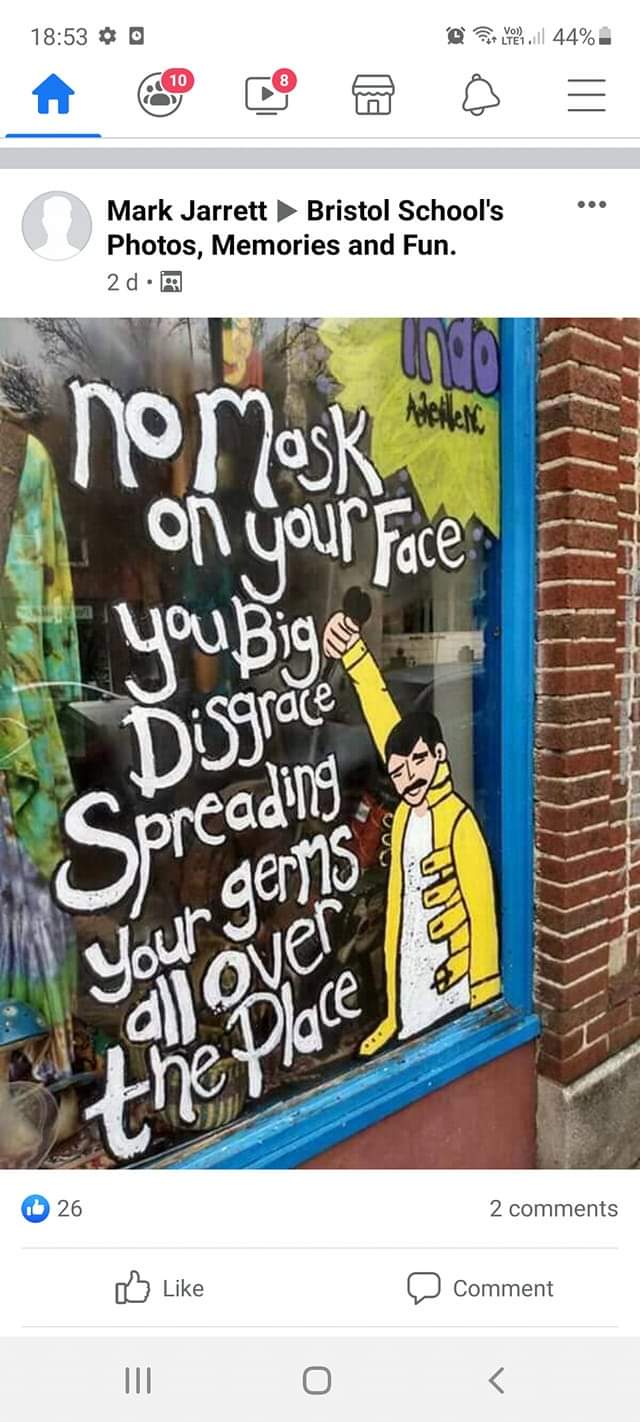 18:53
Vo)) LTE1 44%
10
8
Mark Jarrett ▶ Bristol School's
Photos, Memories and Fun.
2 d
indo
Asheville NC
no Mask
on your Face
you Big
Disgrace
Spreading
your germs
all over
the Place
26
2 comments
Like
Comment